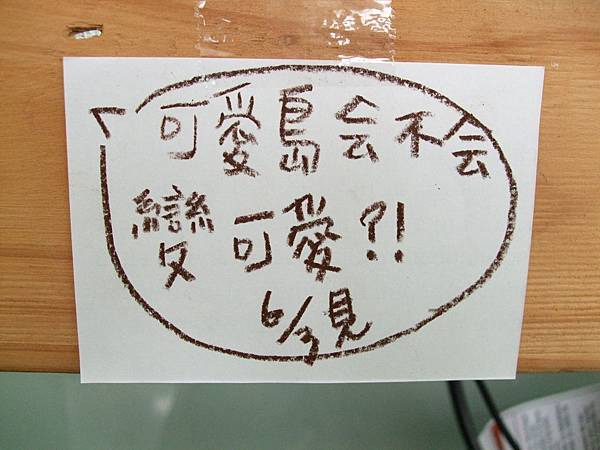 可愛島会不会
變可愛?!
6/3見